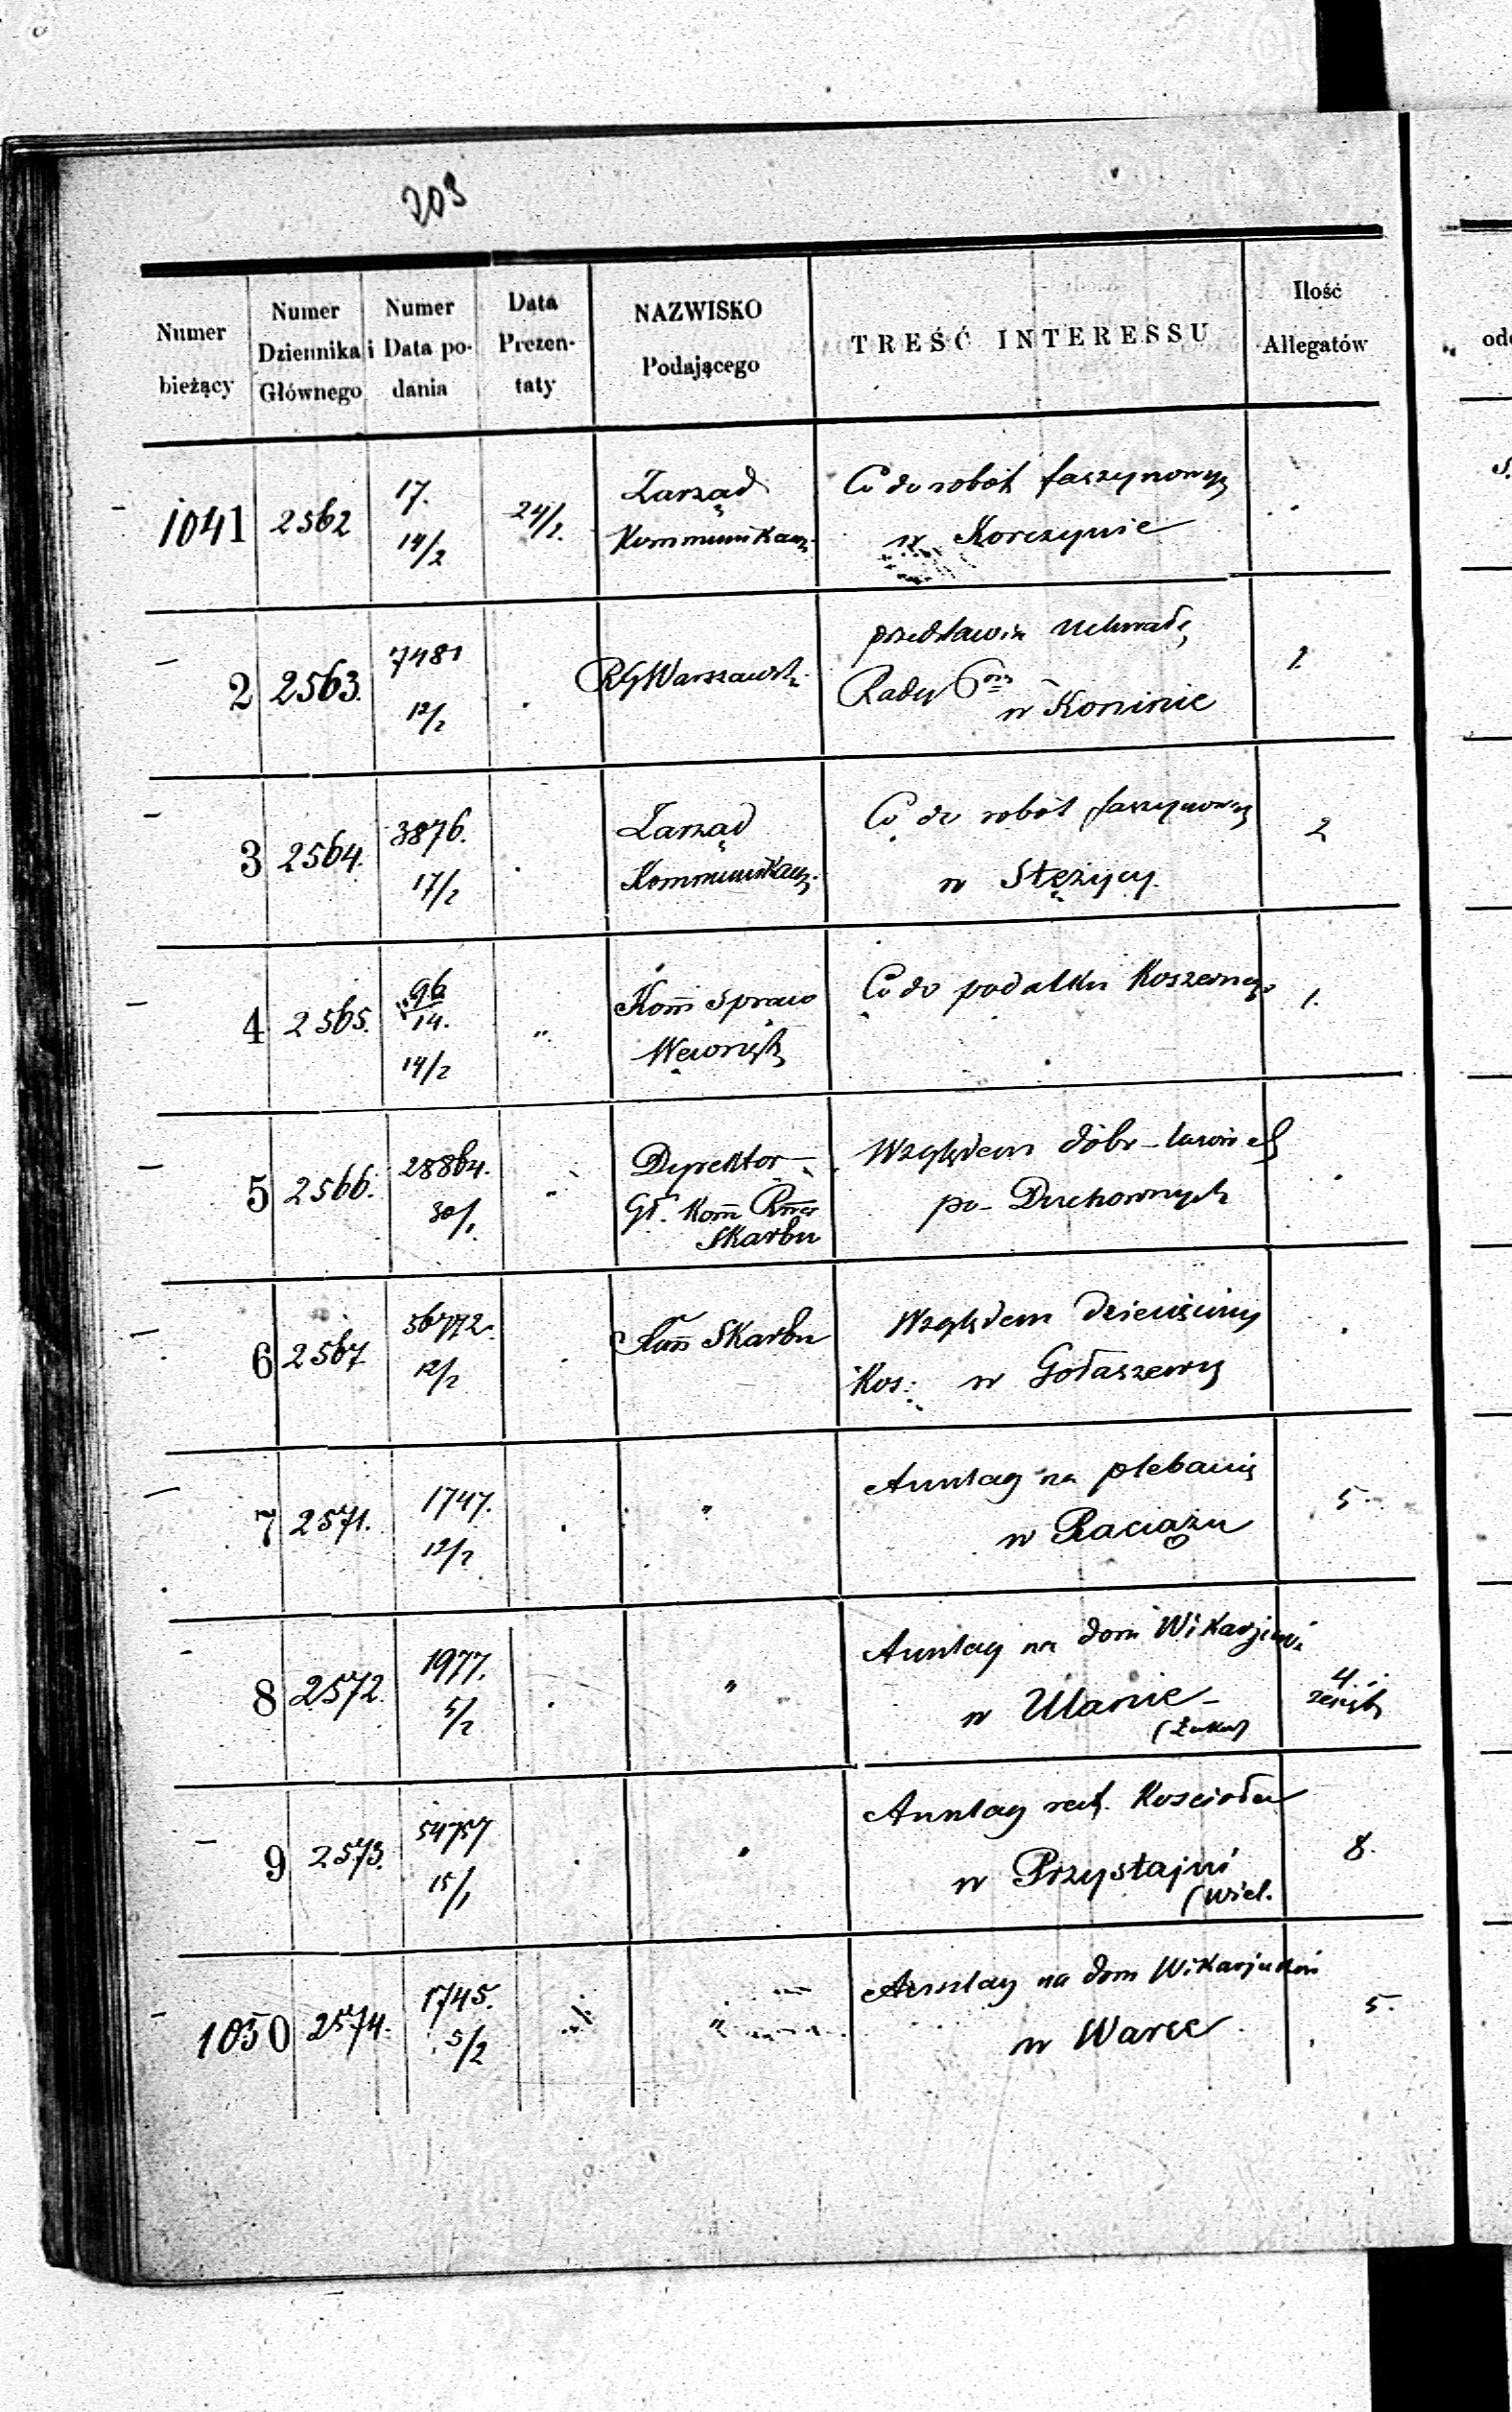 203
Numer bieżący | Numer Dziennika Głównego | Numer i Data podania | Data Prezentaty | NAZWISKO Podającego | TREŚĆ INTERESSU | Ilość Allegatów
1041 | 2562 | 17. 14/2 | 24/2. | Zarząd Kommunikacy. | Co do robót faszynowych w Korczynie
2 | 2563. | 7481 12/2 | RGWarszawsk. | przedstawia Uchwałę Rady w Koninie | 1.
3 | 2564. | 3876. 17/2 | Zarząd Kommunikacy. | Co do robót faszynowych w Stężycy. | 2
4 | 2565. | 96/14. 14/2 | " | Kom̄ Spraw Wewnętr. | Co do podatku Koszernego | 1.
5 | 2566. | 28864. 30/1 | " | Dyrektor Gł. Kom̄ Skarbu | Względem dóbr po-Duchownych
6 | 2567 | 56772. 12/2 | Kom̄ Skarbu | Względem dziesięciny Kos: w Gołaszewie
7 | 2571. | 1747. 12/2 | " | Anszlag na plebanię w Raciążu | 5.
8 | 2572. | 1977. 5/2 | " | Anszlag na dom Wikarjuszów w Ulanie (Łuków) | 4. zeszyt
9 | 2573. | 54757 15/1 | " | Anszlag Kościoła w Przystajni (Wiel. | 8.
1050 | 2574. | 1745. 5/2 | " | Anszlag na dom Wikarjuszów w Warce | 5.